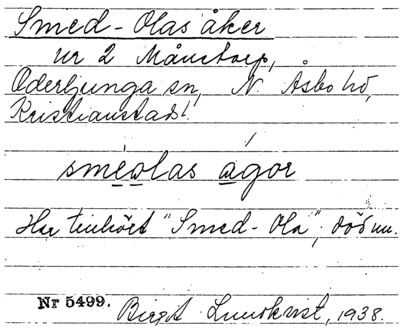 Smed-Olas åker
nr 2 Månstorp,
Oderljunga sn, N. Åsbo hd,
Kristianstads l.
smèɷlas ágor
Har tillhört "Smed-Ola", död nu.
Nr 5499. Birgit Lundkvist, 1938.